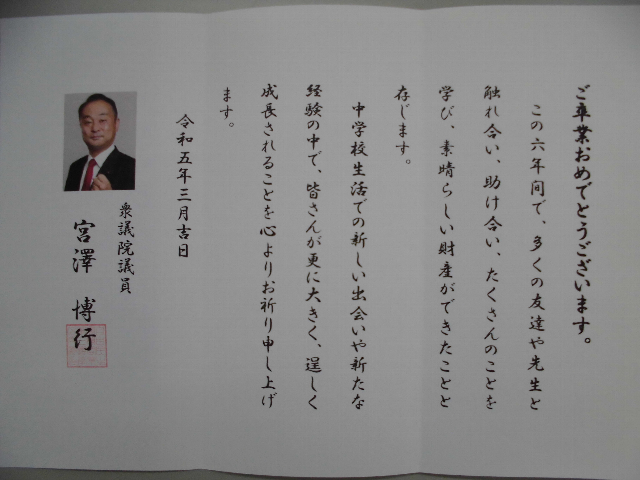 ご卒業おめでとうございます。
この六年間で、多くの友達や先生と
触れ合い、助け合い、たくさんのことを
学び、素晴らしい財産ができたことと
存じます。
中学校生活での新しい出会いや新たな
経験の中で、皆さんが更に大きく、逞しく
成長されることを心よりお祈り申し上げ
ます。
令和五年三月吉日
衆議院議員
宮澤 博行